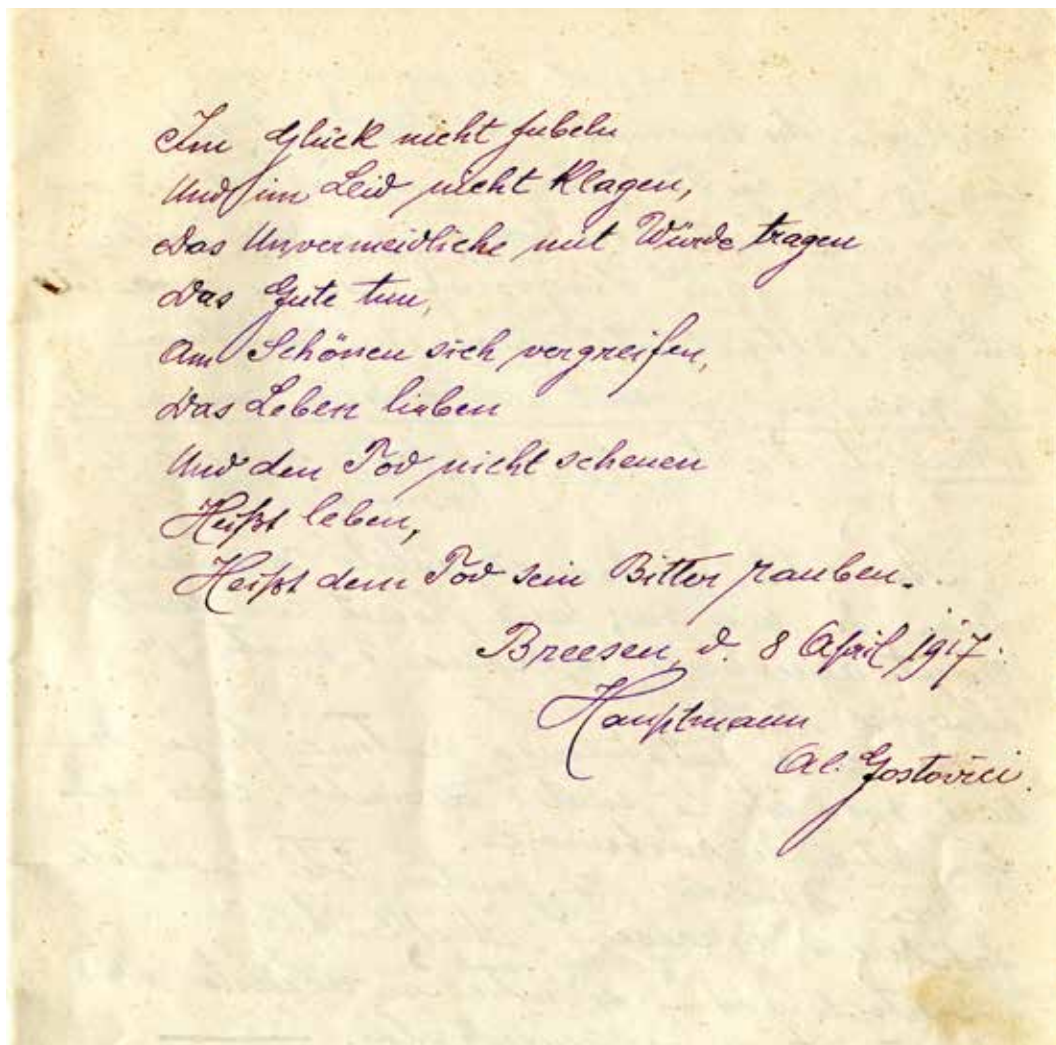 Im Glück nicht jubeln
Und im Leid nicht klagen,
Das Unvermeidliche mit Würde tragen
Das Gute tun,
Am Schönen sich vergreifen,
Das Leben lieben
Und den Tod nicht scheuen
Heißt leben,
Heißt dem Tod sein Bitter rauben.
Breesen, d. 8 April 1917.
Hauptmann
Al. Gostovici.